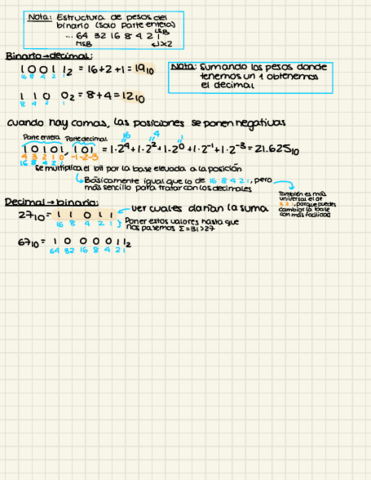 Nota: Estructura de pesos del
binario (solo parte entera)
LSB
... 64 32 16 8 4 2 1
MSB x2
Binario→decimal:
1 0 0 1 1₂ = 16+2+1 = 19₁₀
16 8 4 2 1
Nota: Sumando los pesos donde
tenemos un 1 obtenemos
el decimal
1 1 0 0₂ = 8+4 = 12₁₀
8 4 2 1
Cuando hay comas, las posiciones se ponen negativas
Parte entera Parte decimal
16 4 1
1 0 1 0 1, 1 0 1 = 1·2⁴+1·2²+1·2⁰+1·2⁻¹+1·2⁻³ = 21.625₁₀
4 3 2 1 0 -1 -2 -3
16 8 4 2 1
Se multiplica el bit por la base elevada a la posición
Básicamente igual que lo de 16 8 4 2 1, pero
más sencillo para tratar con los decimales
También es más
universal el de
porque puedes
cambiar la base
con más facilidad
Decimal→binario:
27₁₀ = 1 1 0 1 1
16 8 4 2 1
ver cuales darían la suma
Poner estos valores hasta que
nos pasemos Σ=31>27
67₁₀ = 1 0 0 0 0 1 1₂
64 32 16 8 4 2 1